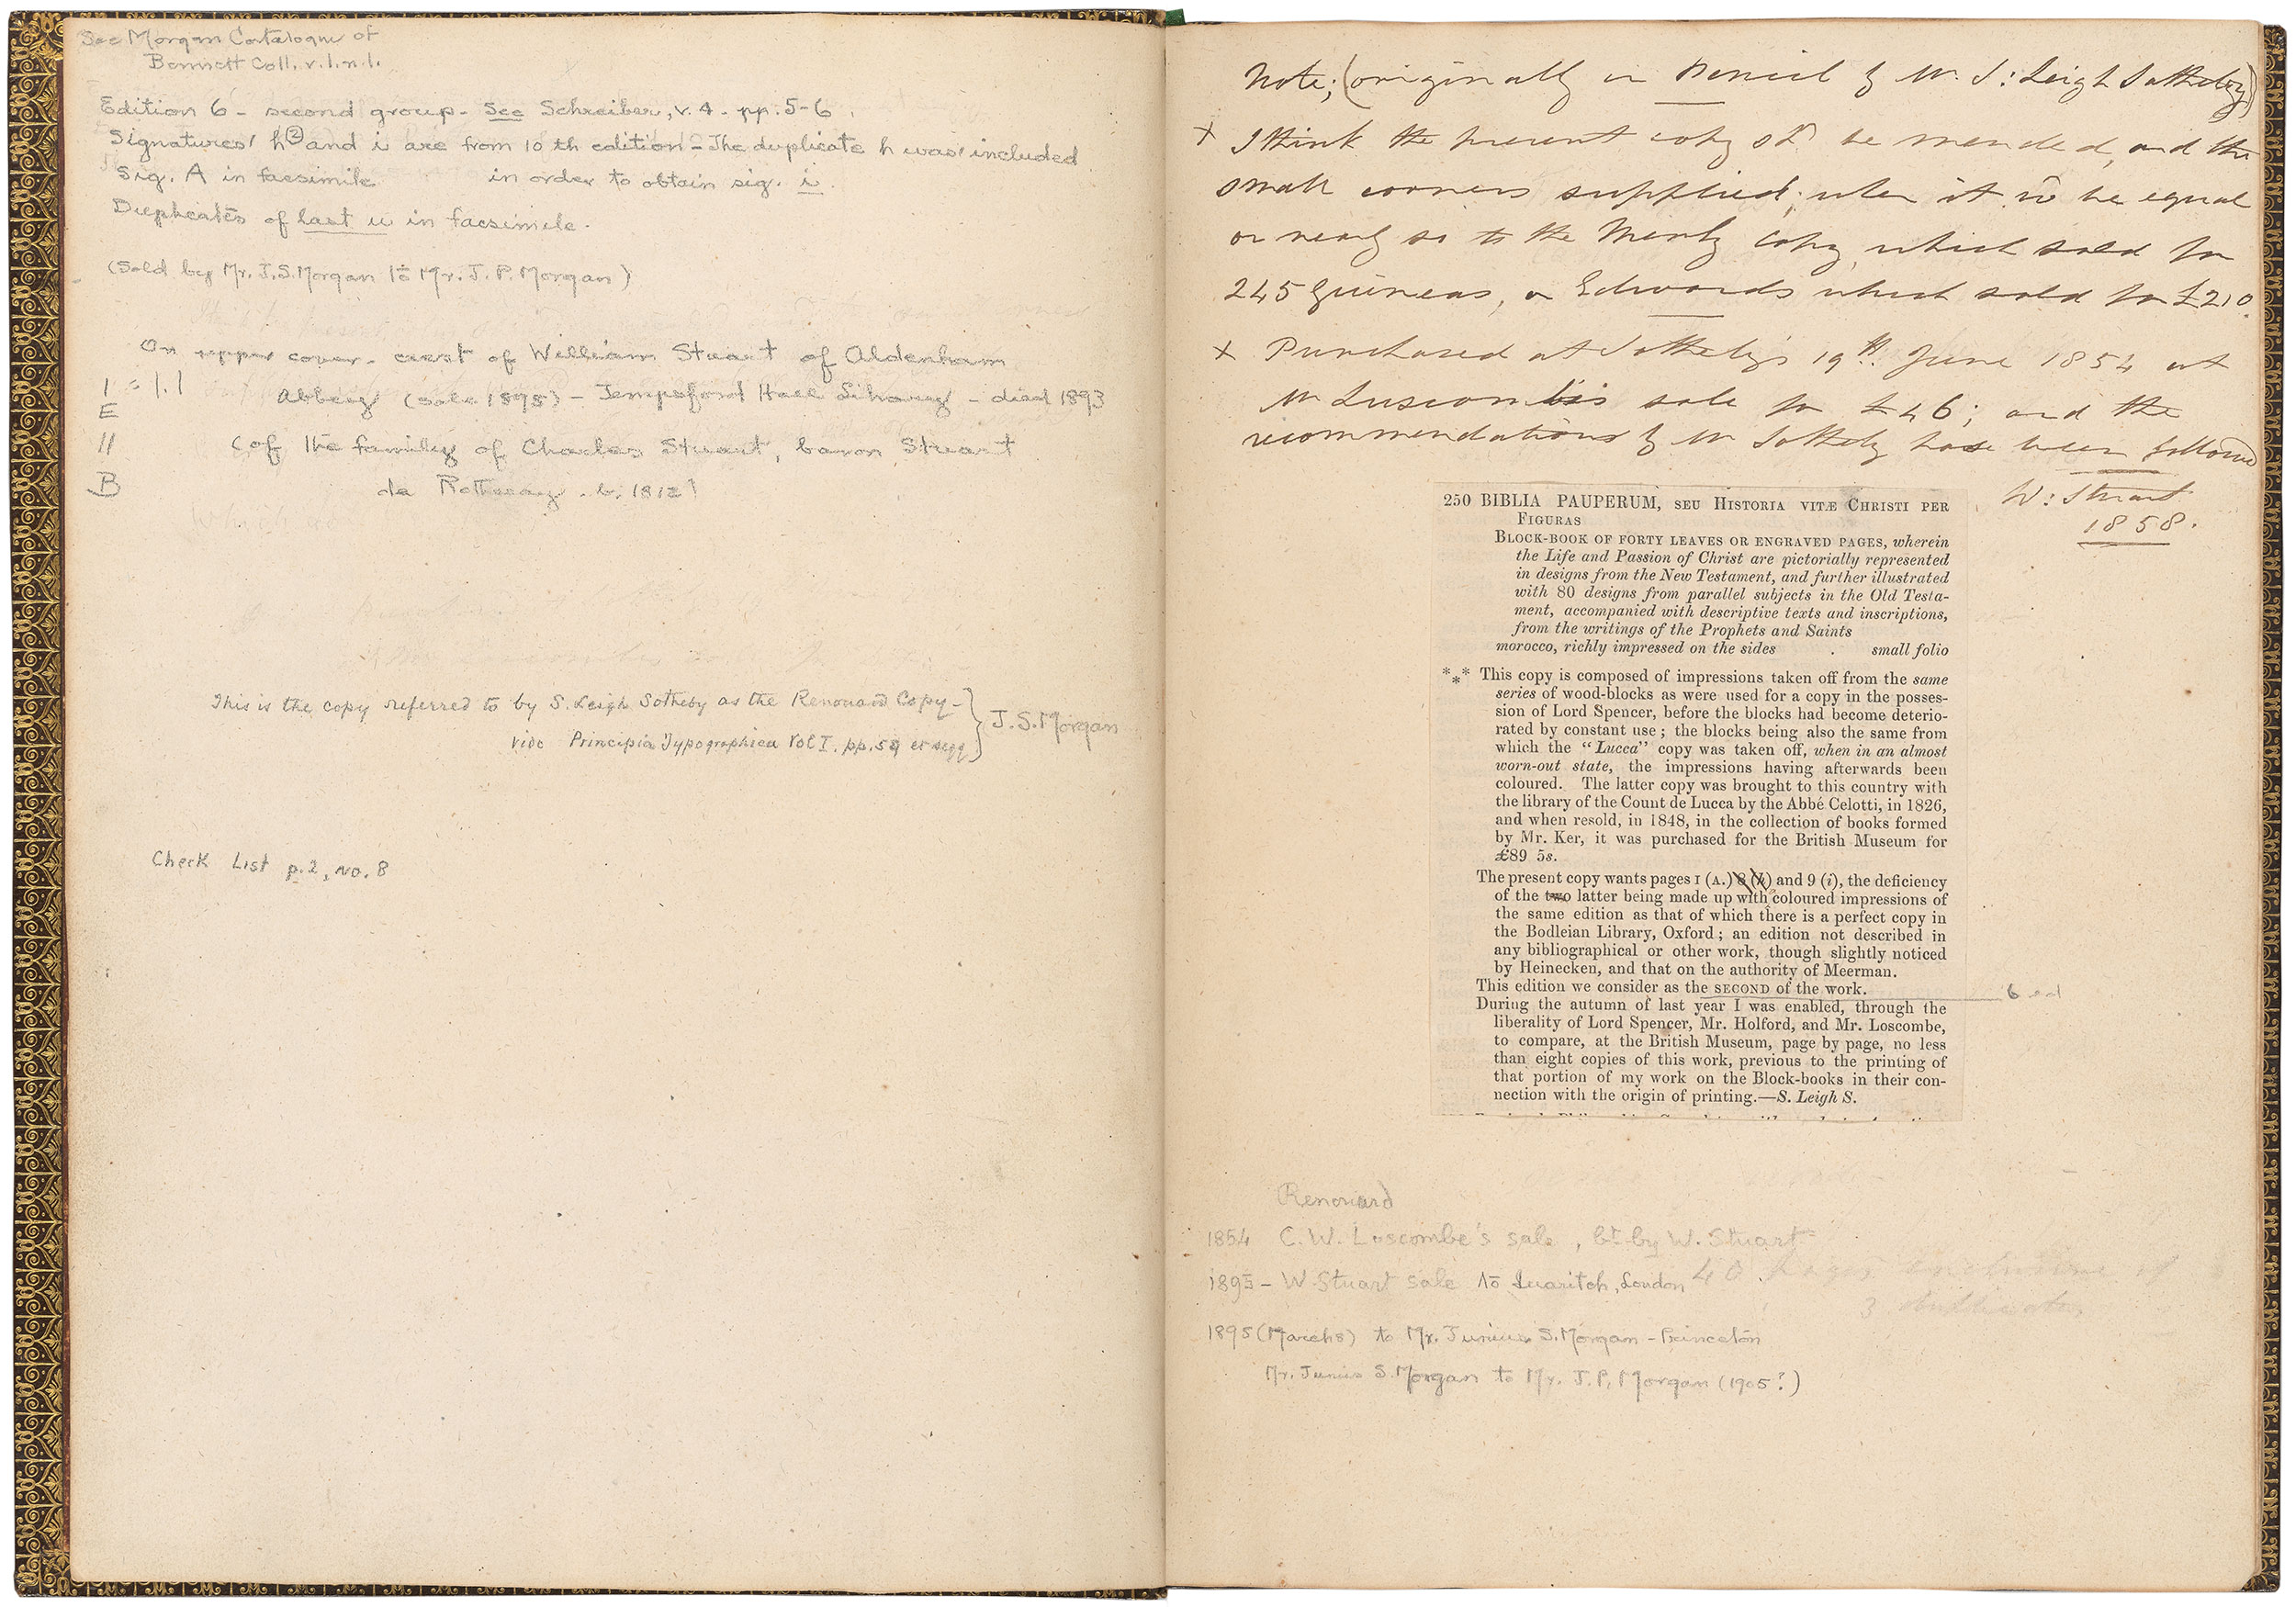 See Morgan Catalogue of
Bennett Coll. v.1.n.1.
Edition 6 - second group. See Schreiber, v. 4. pp. 5-6.
Signatures h② and i are from 10th edition - The duplicate h was included
Sig. A in facsimile in order to obtain sig. i.
Duplicates of last u in facsimile.
(Sold by Mr. J.S. Morgan to Mr. J. P. Morgan)
On upper cover - crest of William Stuart of Aldenham
Abbey (sale 1895) - Tempsford Hall Library - died 1893
(of the family of Charles Stuart, baron Stuart
de Rothesay. b. 1812)
I = 1.1
E
11
B
This is the copy referred to by S. Leigh Sotheby as the Renouard Copy -
vide Principia Typographica Vol I. pp. 59 et seqq
J.S. Morgan
Check List p.2, no. 8
Note; (originally in Pencil by Mr. S: Leigh Sotheby)
+ I think the present copy shd. be mended, and the
small corners supplied; when it wd be equal
or nearly so to the Merly Copy, which sold for
245 guineas, or Edwards which sold for £210.
+ Purchased at Sotheby's 19th June 1854 at
Mr Luscombe's sale for £46; and the
recommendations by Mr Sotheby have been followed
W: Stuart
1858.
250 BIBLIA PAUPERUM, SEU HISTORIA VITÆ CHRISTI PER
FIGURAS
BLOCK-BOOK OF FORTY LEAVES OR ENGRAVED PAGES, wherein
the Life and Passion of Christ are pictorially represented
in designs from the New Testament, and further illustrated
with 80 designs from parallel subjects in the Old Testa-
ment, accompanied with descriptive texts and inscriptions,
from the writings of the Prophets and Saints
morocco, richly impressed on the sides . small folio
*** This copy is composed of impressions taken off from the same
series of wood-blocks as were used for a copy in the posses-
sion of Lord Spencer, before the blocks had become deterio-
rated by constant use; the blocks being also the same from
which the "Lucca" copy was taken off, when in an almost
worn-out state, the impressions having afterwards been
coloured. The latter copy was brought to this country with
the library of the Count de Lucca by the Abbé Celotti, in 1826,
and when resold, in 1848, in the collection of books formed
by Mr. Ker, it was purchased for the British Museum for
£89 5s.
The present copy wants pages 1 (A.) 8 (h) and 9 (i), the deficiency
of the two latter being made up with coloured impressions of
the same edition as that of which there is a perfect copy in
the Bodleian Library, Oxford; an edition not described in
any bibliographical or other work, though slightly noticed
by Heinecken, and that on the authority of Meerman.
This edition we consider as the SECOND of the work.
6 ed
During the autumn of last year I was enabled, through the
liberality of Lord Spencer, Mr. Holford, and Mr. Loscombe,
to compare, at the British Museum, page by page, no less
than eight copies of this work, previous to the printing of
that portion of my work on the Block-books in their con-
nection with the origin of printing.—S. Leigh S.
Renouard
1854 C. W. Loscombe's sale, bt. by W. Stuart
1895 - W Stuart sale to Quaritch, London
40 pages exclusive of
3 duplicates
1895 (March 8) to Mr. Junius S. Morgan - Princeton
Mr. Junius S. Morgan to Mr. J. P. Morgan (1905?)